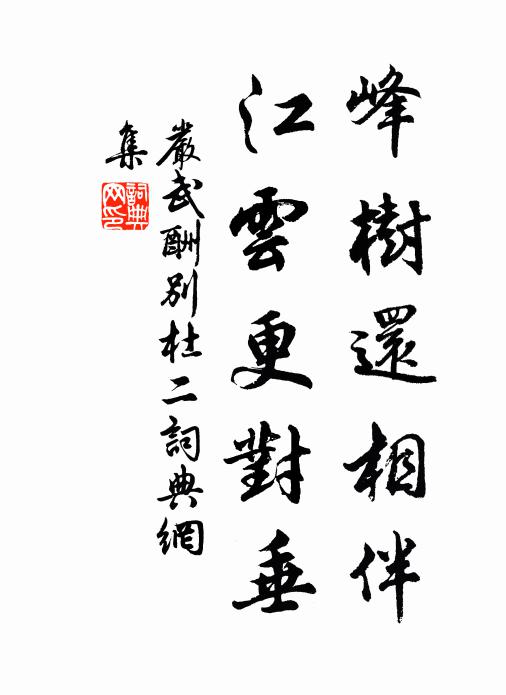 峰樹還相伴
江雲更對垂
嚴武酬別杜二詞典網
集
詞典
网印